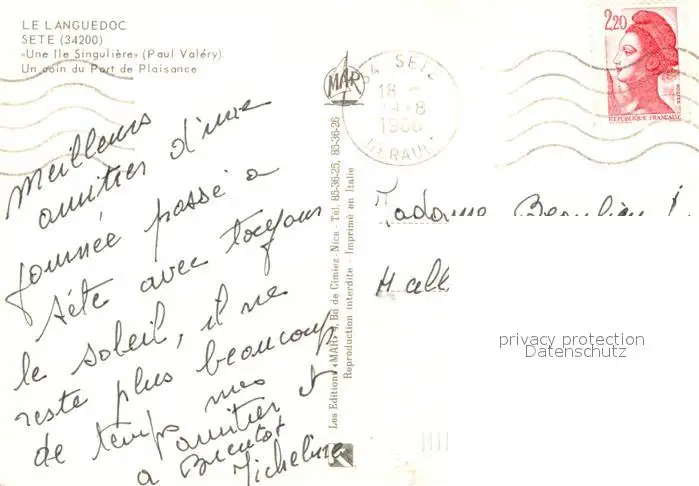 LE LANGUEDOC
SETE (34200)
«Une Ile Singulière» (Paul Valéry)
Un coin du Port de Plaisance
Meilleurs
amitier d'une
journée passé a
séte avec toujours
le soleil, il ne
reste plus beaucoup
de temps mes
amitier et
a Bientot
Micheline
MAR
Les Editions «MAR», Bd de Cimiez - Nice - Tél. 85-36-25, 85-36-26
Reproduction interdite - Imprimé en Italie
34 SETE
18 -
-8
HERAULT
2,20
POSTES
REPUBLIQUE FRANÇAISE
Madame
privacy protection
Datenschutz